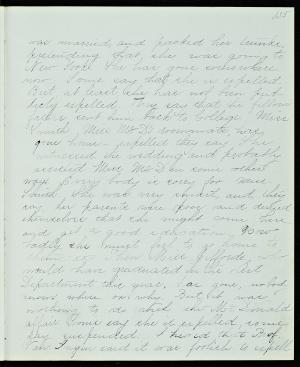 115
was married, and packed her trunk,
pretending that she was going to
New York. She has gone somewhere
now. Some say that she is expelled
But, at least she has not been pub-
licly expelled. They say that
sent him back to College. Miss
Smith, Miss McD's roommate, has
gone home - expelled they say. She
witnessed the wedding and probably
assisted Miss McD in some other
ways. Every body is sorry for Miss
Smith. She was very quiet, and they
say her parents were poor and denied
themselves that she might come here
and get a good education. How
badly she must feel to go home to
them so. Then Miss Gifford, who
would have graduated in the
Department this year, has gone, nobod
knows where or why. But it was
nothing to do with the McDonald
affair. Some say she is expelled, some
say suspended. I heard that Prof
Van said it was foolish to expell